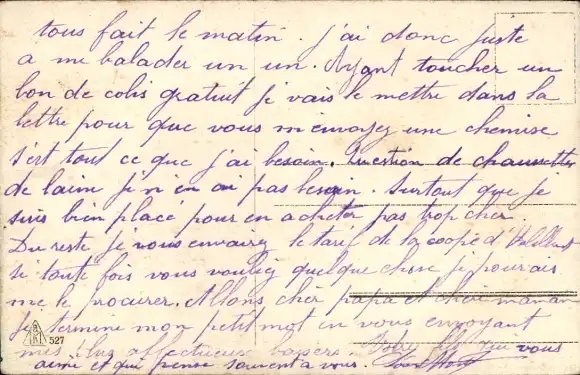 tous fait le matin. j'ai donc juste
a me balader un un. Ayant toucher un
bon de colis gratuit je vais le mettre dans la
lettre pour que vous m envoyez une chemise
s'est tout ce que j'ai besoin. Question de chaussettes
de laine je n'en ai pas besoin. Surtout que je
suis bien place pour en acheter pas trop cher.
Du reste je vous envairez le tarif de la coopé d'
si toute fois vous vouliez quelque chose je pourais
me le procurer. Allons cher papa et chère maman
Je termine mon petit mot en vous envoyant
mes plus affectueux baisers. Votre fils qui vous
aime et qui pense souvent a vous.
527